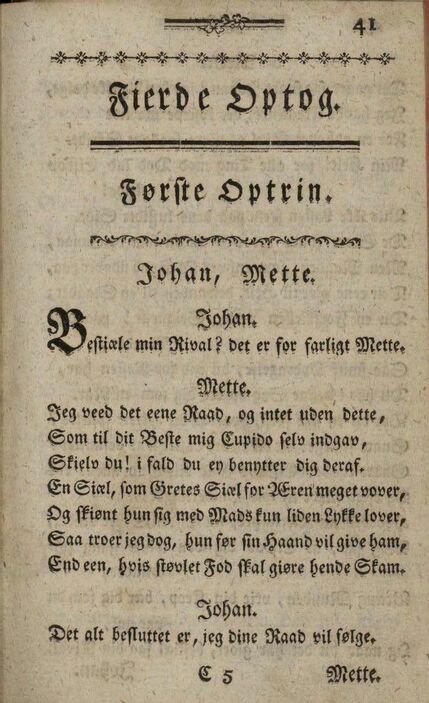 41
Fierde Optog.
Første Optrin.
Johan, Mette.
Johan.
Bestiæle min Rival? det er for farligt Mette.
Mette.
Jeg veed det eene Raad, og intet uden dette,
Som til dit Beste mig Cupido selv indgav,
Skielv du! i fald du ey benytter dig deraf.
En Siæl, som Gretes Siæl for Æren meget vover,
Og skiønt hun sig med Mads kun liden Lykke lover,
Saa troer jeg dog, hun før sin Haand vil give ham,
End een, hvis støvlet Fod skal giøre hende Skam.
Johan.
Det alt besluttet er, jeg dine Raad vil følge.
C 5 Mette.